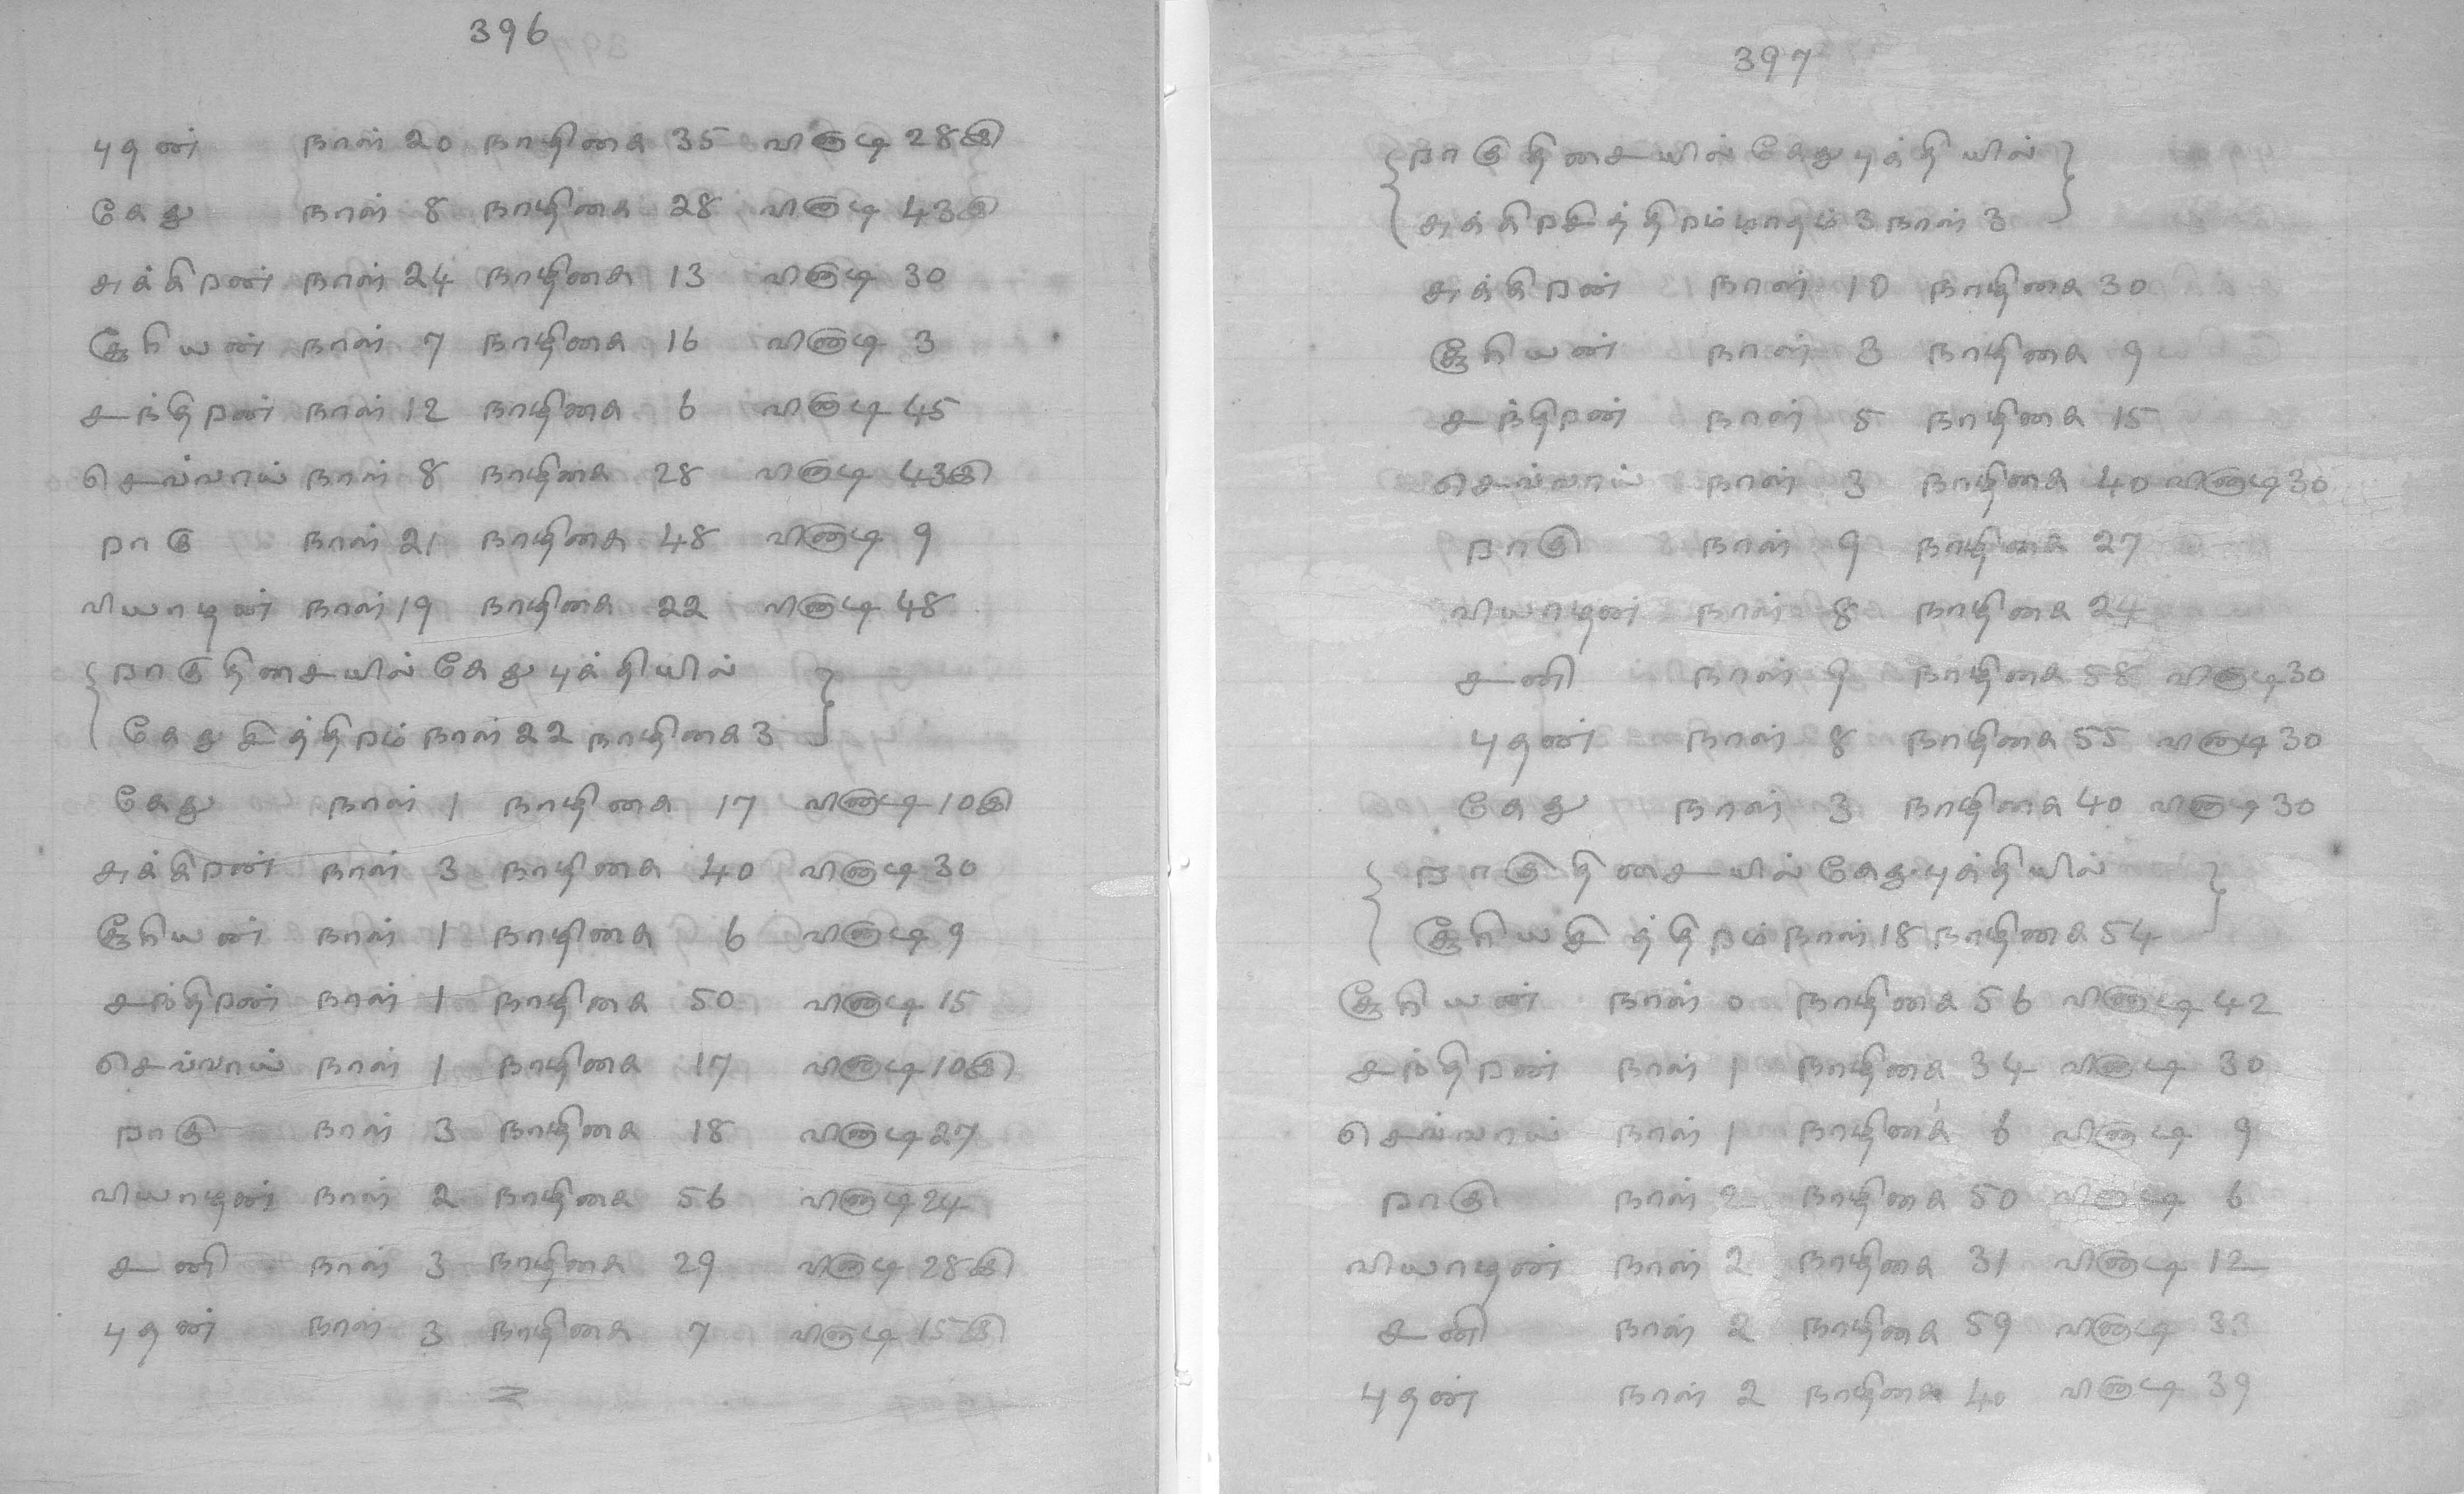 396
புதன் நாள் 20 நாழிகை 35 வினாடி 28இ
கேது நாள் 8 நாழிகை 28 வினாடி 43இ
சுக்கிறன் நாள் 24 நாழிகை 13 வினாடி 30
சூரியன் நாள் 7 நாழிகை 16 வினாடி 3
சந்திறன் நாள் 12 நாழிகை 6 வினாடி 45
செவ்வாய் நாள் 8 நாழிகை 28 வினாடி 43இ
றாகு நாள் 21 நாழிகை 48 வினாடி 9
வியாழன் நாள் 19 நாழிகை 22 வினாடி 48
றாகு திசையில் கேது புக்தியில்
கேது சித்திறம் நாள் 22 நாழிகை 3
கேது நாள் 1 நாழிகை 17 வினாடி 10இ
சுக்கிறன் நாள் 3 நாழிகை 40 வினாடி 30
சூரியன் நாள் 1 நாழிகை 6 வினாடி 9
சந்திறன் நாள் 1 நாழிகை 50 வினாடி 15
செவ்வாய் நாள் 1 நாழிகை 17 வினாடி 10இ
றாகு நாள் 3 நாழிகை 18 வினாடி 27
வியாழன் நாள் 2 நாழிகை 56 வினாடி 24
சனி நாள் 3 நாழிகை 29 வினாடி 28இ
புதன் நாள் 3 நாழிகை 7 வினாடி 15இ
397
றாகு திசையில் கேது புக்தியில்
சுக்கிறசித்திறம் மாதம் 3 நாள் 3
சுக்கிறன் நாள் 10 நாழிகை 30
சூரியன் நாள் 3 நாழிகை 9
சந்திறன் நாள் 5 நாழிகை 15
செவ்வாய் நாள் 3 நாழிகை 40 வினாடி 30
றாகு நாள் 9 நாழிகை 27
வியாழன் நாள் 8 நாழிகை 24
சனி நாள் 9 நாழிகை 58 வினாடி 30
புதன் நாள் 8 நாழிகை 55 வினாடி 30
கேது நாள் 3 நாழிகை 40 வினாடி 30
றாகு திசையில் கேது புக்தியில்
சூரியசித்திறம் நாள் 18 நாழிகை 54
சூரியன் நாள் 0 நாழிகை 56 வினாடி 42
சந்திறன் நாள் 1 நாழிகை 34 வினாடி 30
செவ்வாய் நாள் 1 நாழிகை 6 வினாடி 9
றாகு நாள் 2 நாழிகை 50 வினாடி 6
வியாழன் நாள் 2 நாழிகை 31 வினாடி 12
சனி நாள் 2 நாழிகை 59 வினாடி 33
புதன் நாள் 2 நாழிகை 40 வினாடி 39